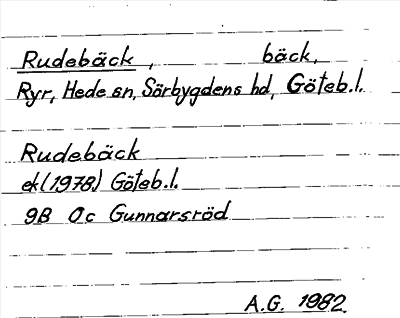 Rudebäck, bäck,
Ryr, Hede sn, Sörbygdens hd, Göteb.l.
Rudebäck
ek(1978) Göteb.l.
9B 0c Gunnarsröd
A.G. 1982.